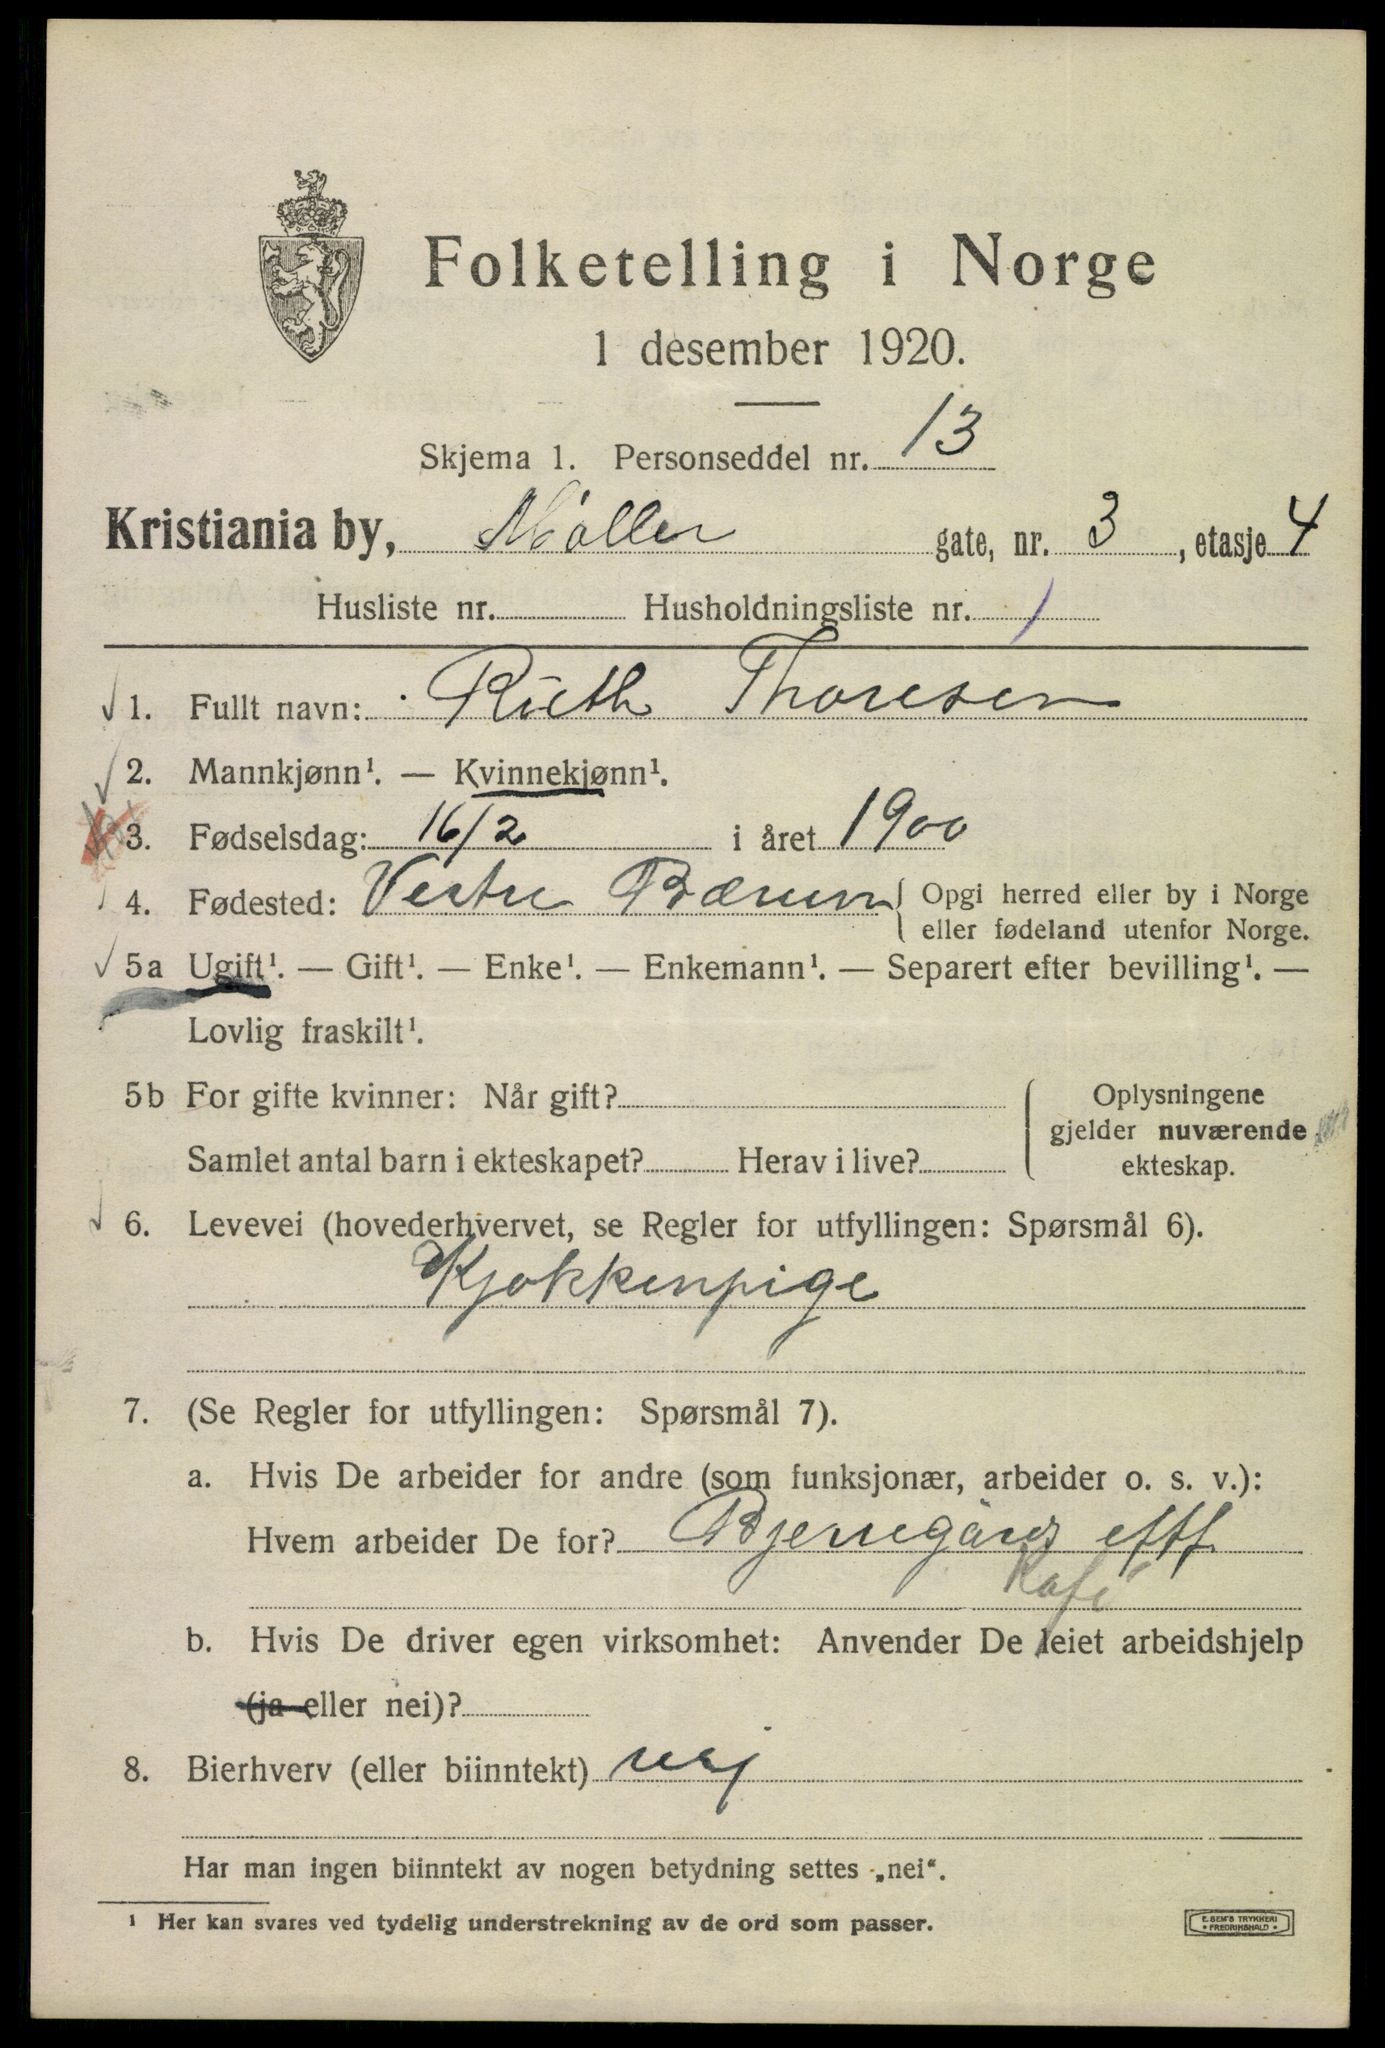 Folketelling i Norge
1 desember 1920.
Skjema 1. Personseddel nr. 13
Kristiania by, Møller gate, nr. 3, etasje 4
Husliste nr. Husholdningsliste nr. 1
1. Fullt navn: Rüth Thoresen
2. Mannkjønn¹. — Kvinnekjønn¹.
3. Fødselsdag: 16/2 i året 1900
4. Fødested: Vestre Bærum { Opgi herred eller by i Norge
eller fødeland utenfor Norge.
5a Ugift¹. — Gift¹. — Enke¹. — Enkemann¹. — Separert efter bevilling¹. —
Lovlig fraskilt¹.
5b For gifte kvinner: Når gift?
Samlet antal barn i ekteskapet? Herav i live?
{ Oplysningene
gjelder nuværende
ekteskap.
6. Levevei (hovederhvervet, se Regler for utfyllingen: Spørsmål 6).
Kjøkkenpige
7. (Se Regler for utfyllingen: Spørsmål 7).
a. Hvis De arbeider for andre (som funksjonær, arbeider o. s. v.):
Hvem arbeider De for? Bjerregårds eftf.
Kafé
b. Hvis De driver egen virksomhet: Anvender De leiet arbeidshjelp
(ja eller nei)?
8. Bierhverv (eller biinntekt) nej
Har man ingen biinntekt av nogen betydning settes „nei“.
¹ Her kan svares ved tydelig understrekning av de ord som passer.
E. SEM'S TRYKKERI
• FREDRIKSHALD •